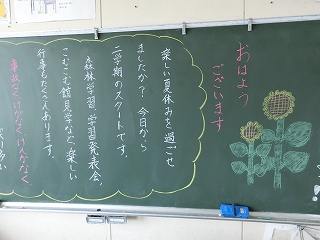 おはよう
ございます
楽しい夏休みを過ごせ
ましたか?今日から
二学期のスタートです。
森林学習、学習発表会、
こむこむ館見学など、楽しい
行事もたくさんあります。
事故なくけがなくけんかなく